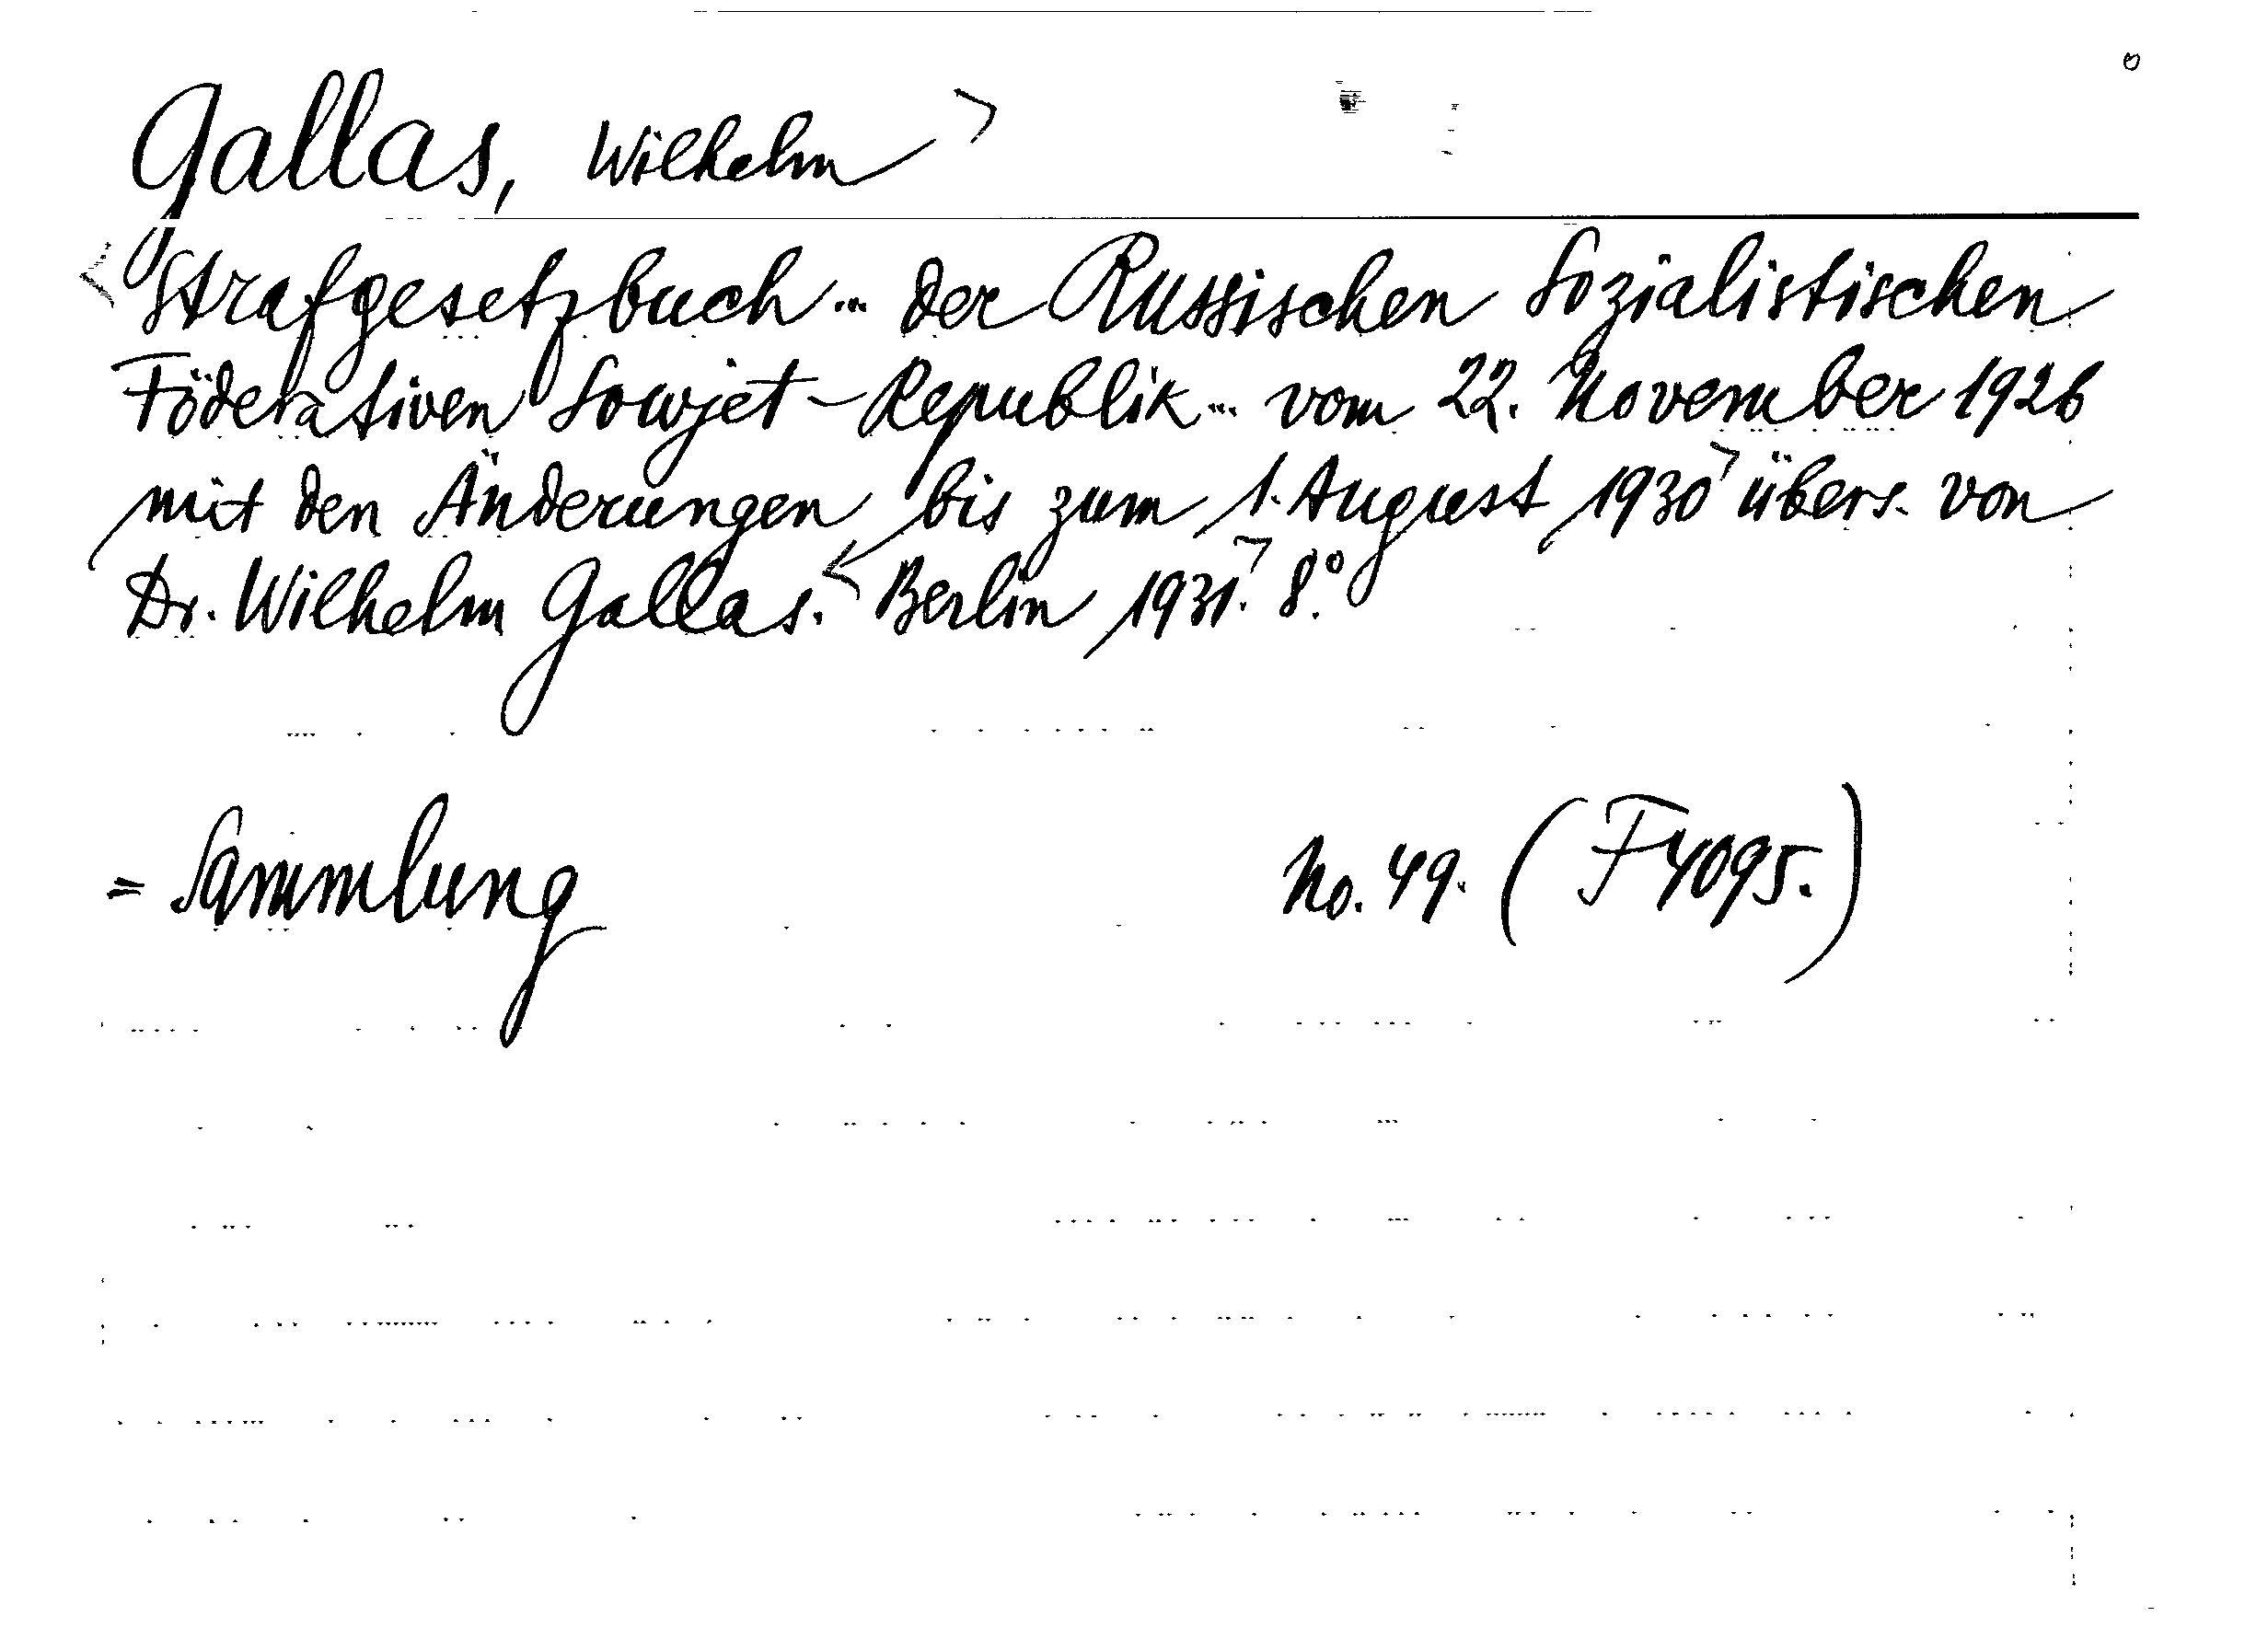 Gallas, Wilhelm >
<Strafgesetzbuch... der Russischen Sozialistischen
Föderativen Sowjet-Republik... vom 22. November 1926
mit den Änderungen bis zum 1. August 1930> übers. von
Dr. Wilhelm Gallas. <Berlin 1931.> 8.°
= Sammlung No. 49. (F4095.)